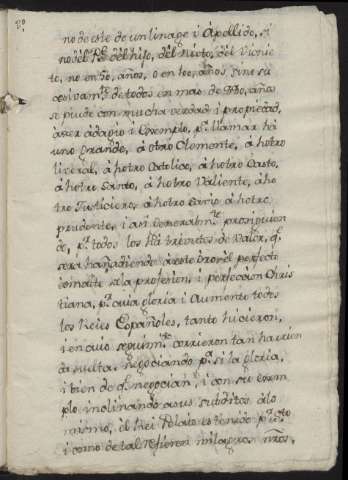 no de este de un linage i Apellido, si
no del Pe. del hijo, del nieto, del visnie
to, no en 50, años, o en 100, años, sino su
cesivamte. de todos en mas de años
se pude con mucha verdad i propiedad,
aser adagio i exemplo, pa. llamar ha
uno Grande, á otro Clemente, á hotro
liveral, á hotro Catolico, á hotro Casto,
á hotro Santo, á hotro Valiente, á ho
tro Justiciero, á hotro Savio á hotro
prudente, i asi Generalmte. prosiguien
do, pr. todos los Atrevitos de valor, qe.
será hañadiendo á este Crisol perfecto
esmalte a la profesion, i perfeccion Chris
tiana, pa. cuia gloria i Aumento todos
los Reies Españoles, tanto hicieron,
i en cuio seguimto. corrieron tan ha rien
da suelta, negociando pa. si la gloria,
i bien de qe. negocian, i con su exem
plo inclinando a sus subditos á lo
mismo, el Rei Pelaio es tenido pr. Sto.
i como de tal refieren milagros, nros,